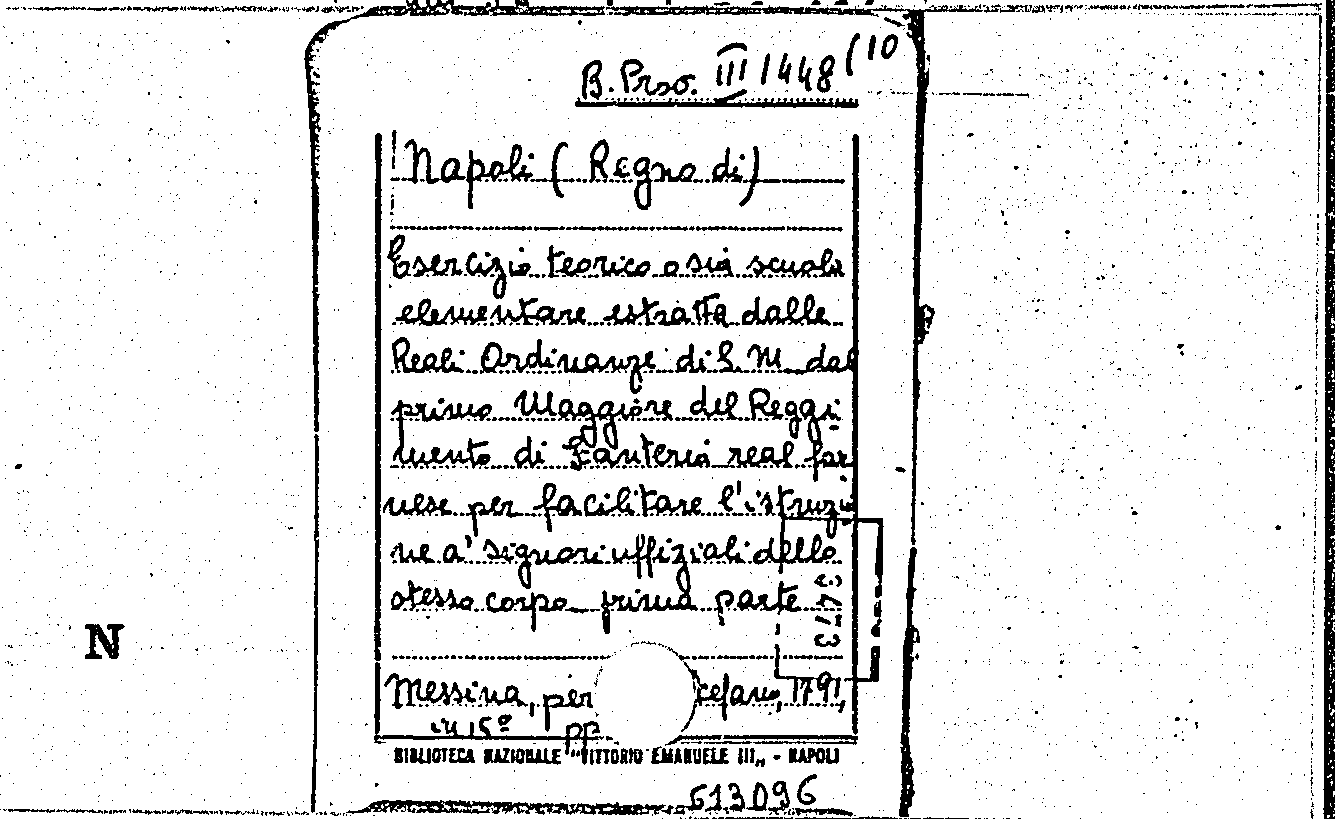 B. Prso. III 1448 (10
Napoli ( Regno di)
Esercizio teorico o sia scuola
elementare estratta dalle
Reali Ordinanze di S. M. dal
primo Maggiore del Reggi
mento di Fanteria real far
nese per facilitare l'istruzio
ne a' signori uffiziali dello
stesso corpo prima parte
3473
Messina, per cefano, 1791,
in 15º pp
BIBLIOTECA NAZIONALE "VITTORIO EMANUELE III„ - NAPOLI
613096
N